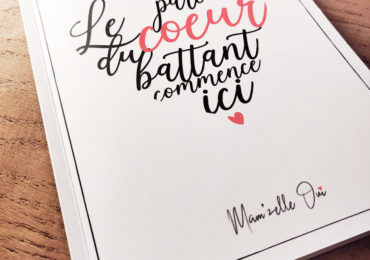 Le
coeur
du battant
commence
ici
Mam'zelle Oui